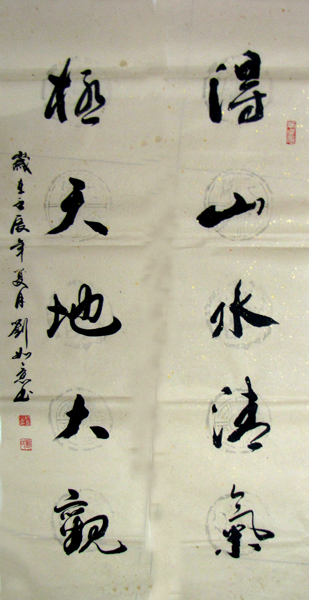 得山水清氣
極天地大觀
歲在壬辰年夏月劉如意书